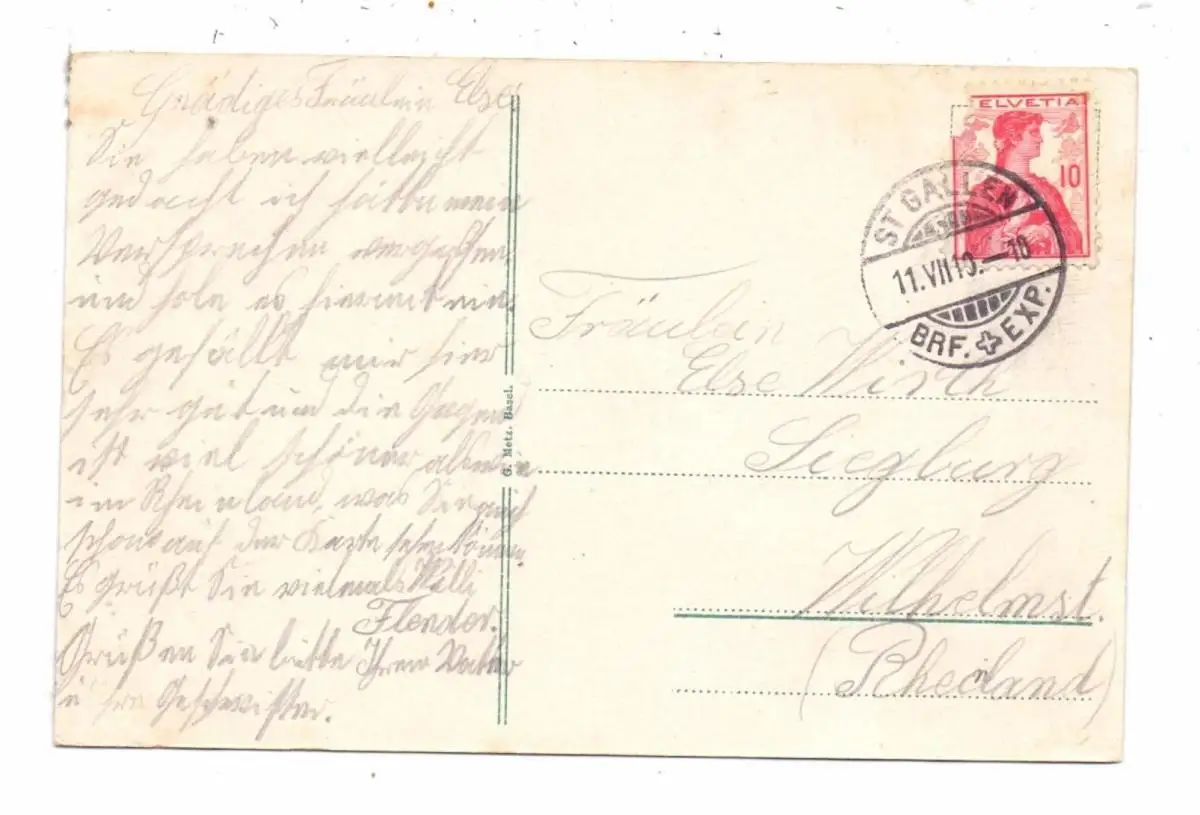 Gnädiges Fräulein Else!
Sie haben vielleicht
gedacht ich hätte mein
Versprechen vergessen,
und hole es hiermit ein.
Es gefällt mir hier
sehr gut und die Gegend
ist viel schöner als
im Rheinland, was Sie auch
schon auf der Karte sehen können.
Es grüßt Sie vielmals Willi
Flender.
Grüßen Sie bitte Ihren Vater
u ihre Geschwister.
G. Metz, Basel.
HELVETIA
10
ST GALLEN
11.VII.10.–10
BRF. EXP.
Fräulein
Else Wirth
Siegburg
Wilhelmst.
(Rheinland)